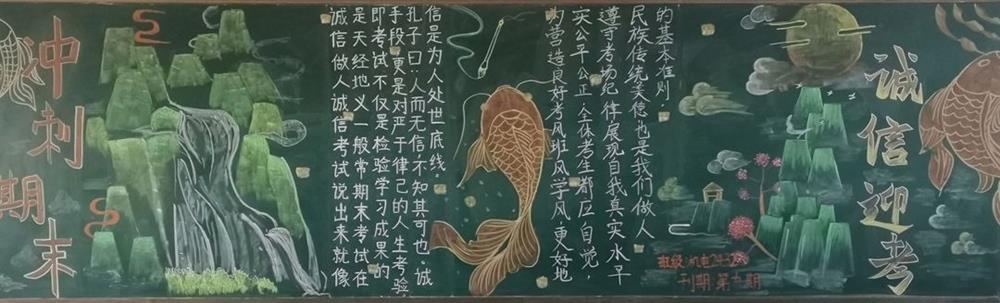 冲刺
期末
诚信做人诚信考试说出来就像
是天经地义一般常期末考试在
即考试不仅是检验学习成果的
手段更是对严于律己的人生考验
孔子曰:人而无信不知其可也 诚
信是为人处世底线.
为营造良好考风班风学风更好地
实公平公正.全体考生都应自觉
遵守考场纪律展现自我真实水平
民族传统美德也是我们做人
的基本准则
诚信迎考
班级:机电
刊期:第九期